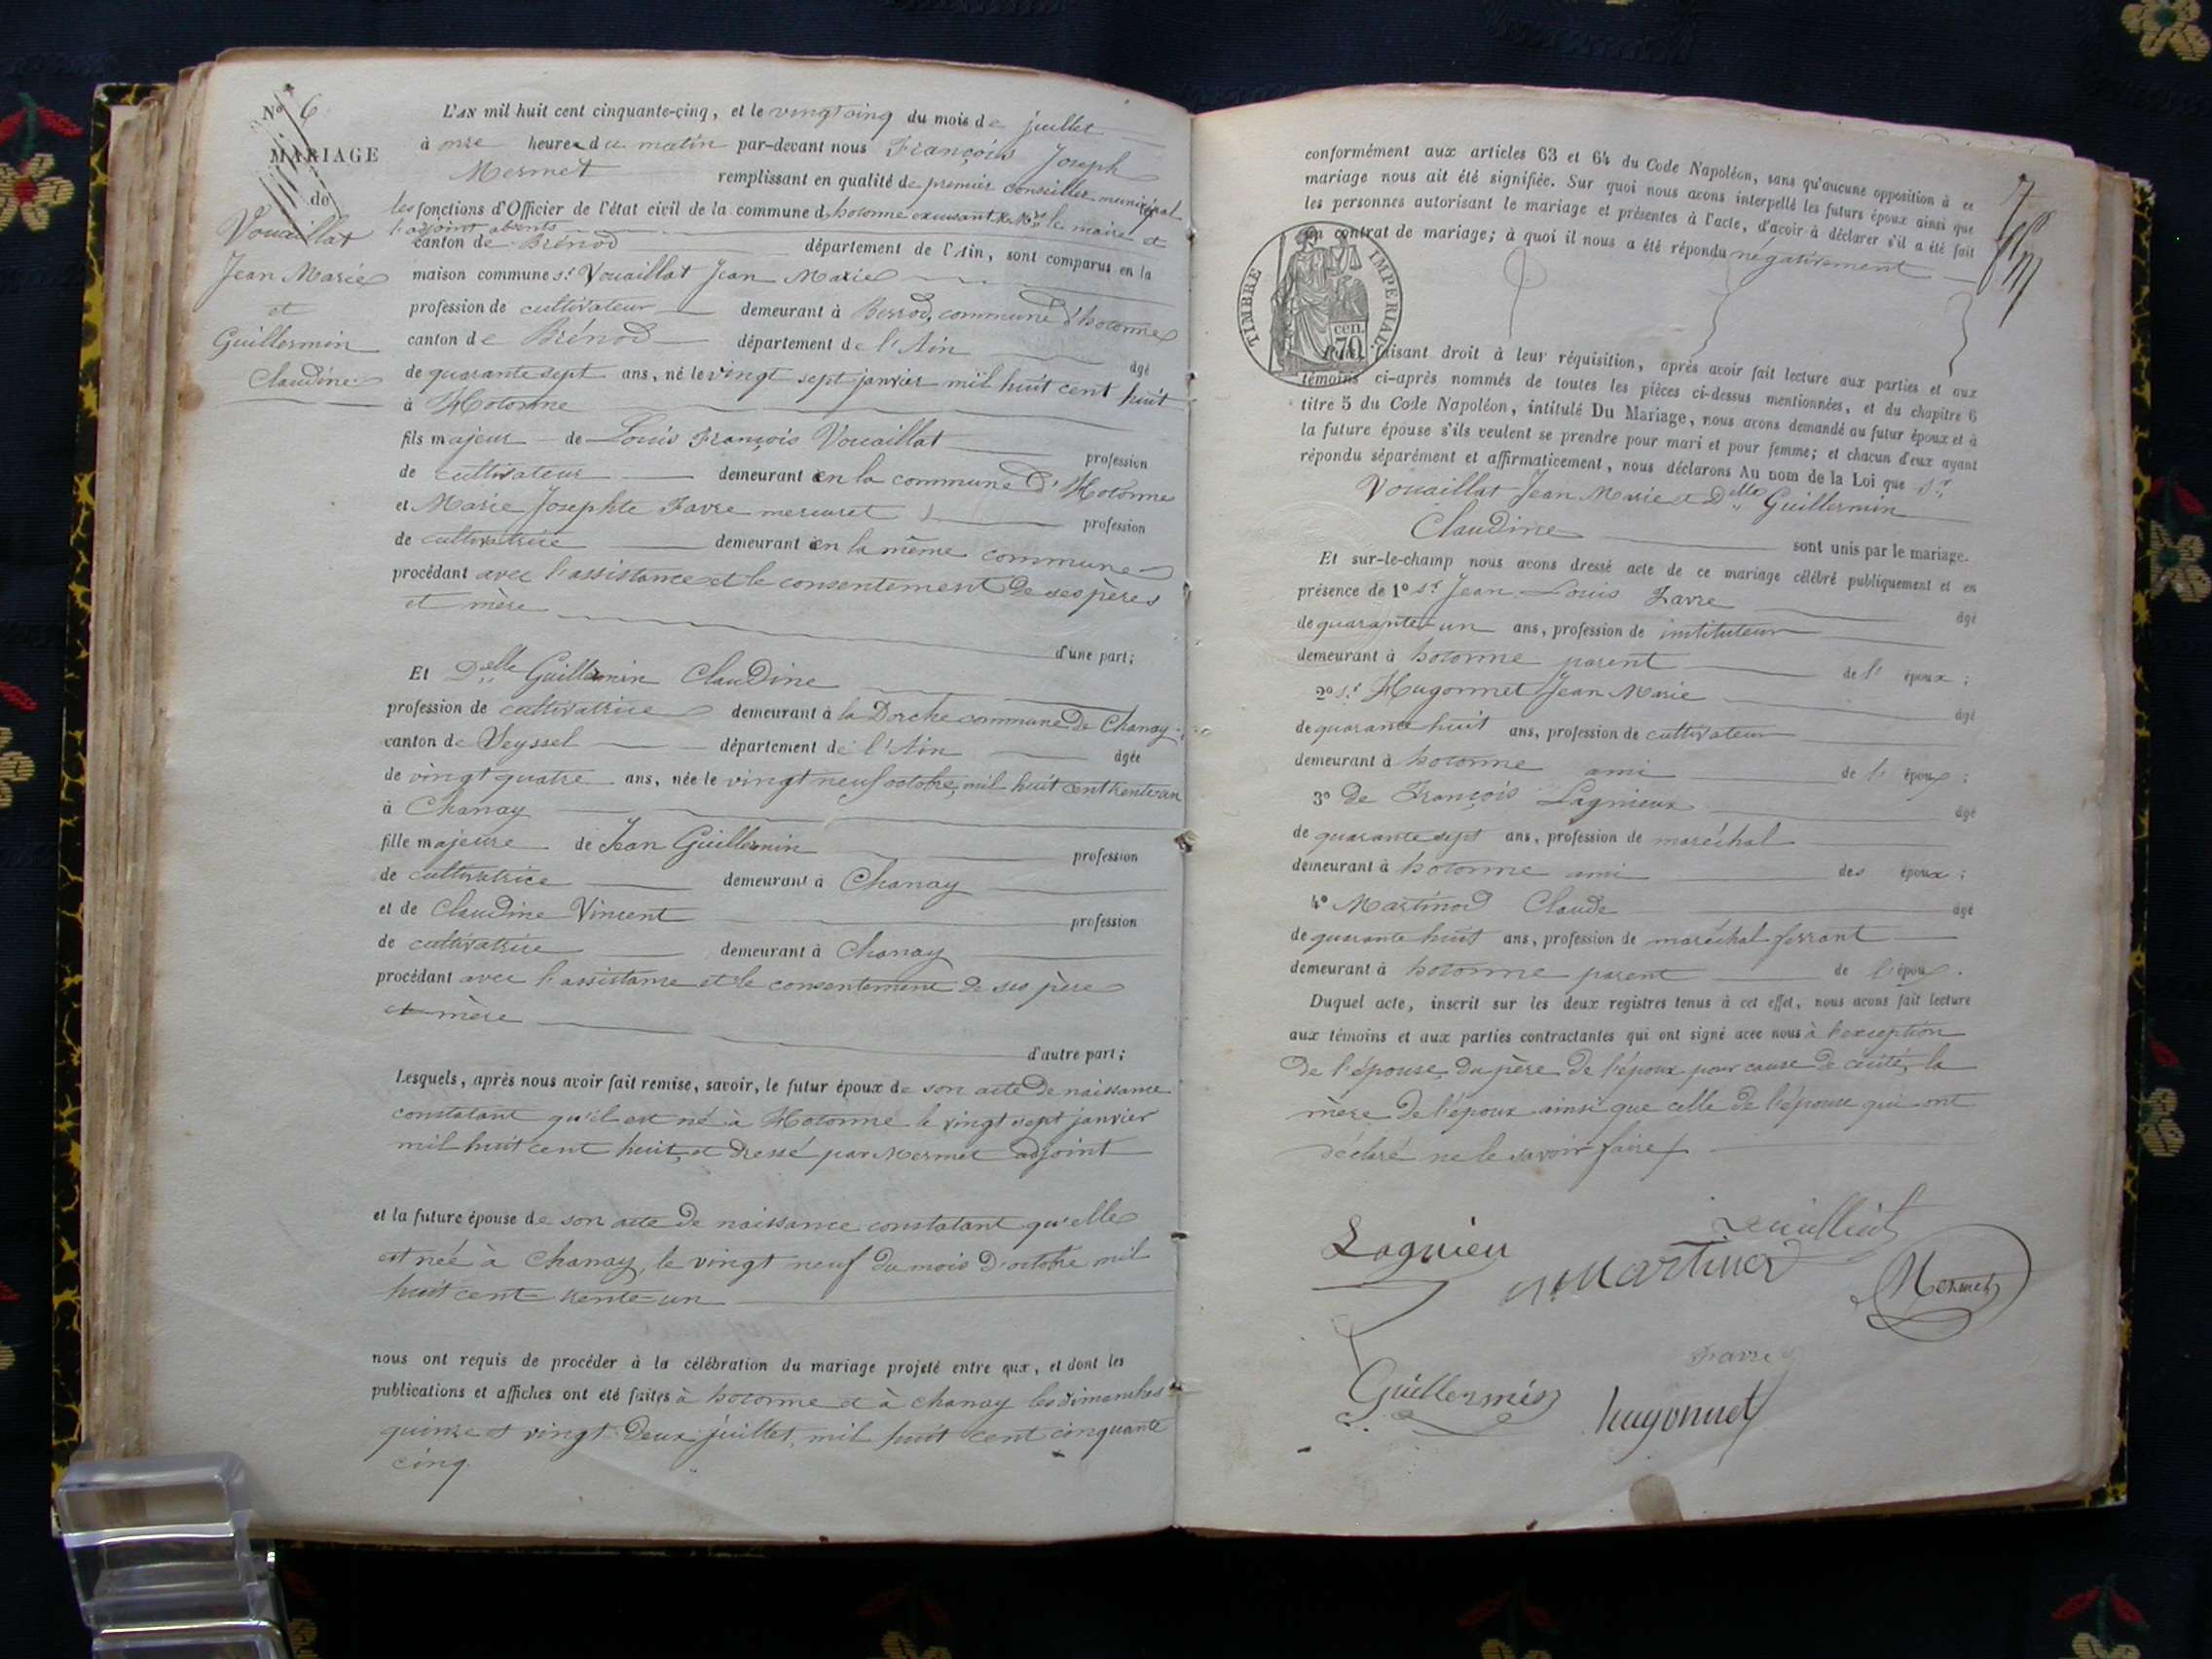 N° 6
MARIAGE
de
Vouaillat
Jean Marie
et
Guillermin
Claudine
L'AN mil huit cent cinquante-cinq, et le vingt cinq du mois de juillet
à onze heures du matin par-devant nous François Joseph
Mermet remplissant en qualité de premier conseiller municipal
les fonctions d'Officier de l'état civil de la commune d'hotonne le maire et
l'adjoint absents
canton de Brénod département de l'Ain, sont comparus en la
maison commune sr Vouaillat Jean Marie
profession de cultivateur demeurant à commune d'hotonne
canton de Brénod département de l'Ain âgé
de quarante sept ans, né le vingt sept janvier mil huit cent huit
à Hotonne
fils majeur de Louis François Vouaillat profession
de cultivateur demeurant en la commune d'Hotonne
et Marie Josephte Favre mercuret profession
de cultivatrice demeurant en la même commune
procédant avec l'assistance et le consentement de ses pères
et mère
d'une part;
Et Delle Guillermin Claudine
profession de cultivatrice demeurant à la Dorche commune de Chanay
canton de Seyssel département de l'Ain âgée
de vingt quatre ans, née le vingt neuf octobre, mil huit cent trente un
à Chanay
fille majeure de Jean Guillermin profession
de cultivatrice demeurant à Chanay
et de Claudine Vincent profession
de cultivatrice demeurant à Chanay
procédant avec l'assistance et le consentement de ses père
et mère
d'autre part;
Lesquels, après nous avoir fait remise, savoir, le futur époux de son acte de naissance
constatant qu'il est né à Hotonne le vingt sept janvier
mil huit cent huit, et dressé par Mermet adjoint
et la future épouse de son acte de naissance constatant qu'elle
est née à Chanay, le vingt neuf du mois d'octobre mil
huit cent trente un
nous ont requis de procéder à la célébration du mariage projeté entre eux, et dont les
publications et affiches ont été faites à hotonne et à Chanay les dimanches
quinze et vingt deux juillet, mil huit cent cinquante
cinq.
conformément aux articles 63 et 64 du Code Napoléon, sans qu'aucune opposition à ce
mariage nous ait été signifiée. Sur quoi nous avons interpellé les futurs époux ainsi que
les personnes autorisant le mariage et présentes à l'acte, d'avoir à déclarer s'il a été fait
un contrat de mariage; à quoi il nous a été répondu négativement
TIMBRE IMPERIAL
70 cen.
faisant droit à leur réquisition, après avoir fait lecture aux parties et aux
témoins ci-après nommés de toutes les pièces ci-dessus mentionnées, et du chapitre 6
titre 5 du Code Napoléon, intitulé Du Mariage, nous avons demandé au futur époux et à
la future épouse s'ils veulent se prendre pour mari et pour femme; et chacun d'eux ayant
répondu séparément et affirmativement, nous déclarons Au nom de la Loi que sr
Vouaillat Jean Marie et Delle Guillermin
Claudine sont unis par le mariage.
Et sur-le-champ nous avons dressé acte de ce mariage célébré publiquement et en
présence de 1° sr Jean Louis Favre âgé
de quarante un ans, profession de instituteur
demeurant à hotonne parent de l' époux;
2° sr Hugonnet Jean Marie âgé
de quarante huit ans, profession de cultivateur
demeurant à hotonne ami de l' époux;
3° de François Lagnieux âgé
de quarante sept ans, profession de maréchal
demeurant à hotonne ami des époux;
4° Martinod Claude âgé
de quarante huit ans, profession de maréchal ferrant
demeurant à hotonne parent de l'époux.
Duquel acte, inscrit sur les deux registres tenus à cet effet, nous avons fait lecture
aux témoins et aux parties contractantes qui ont signé avec nous à l'exception
de l'épouse, du père de l'époux pour cause de cécité, la
mère de l'époux ainsi que celle de l'épouse qui ont
déclaré ne le savoir faire
Lagnieu
Martinod
Mermet
Favre
Guillermin
hugonnet